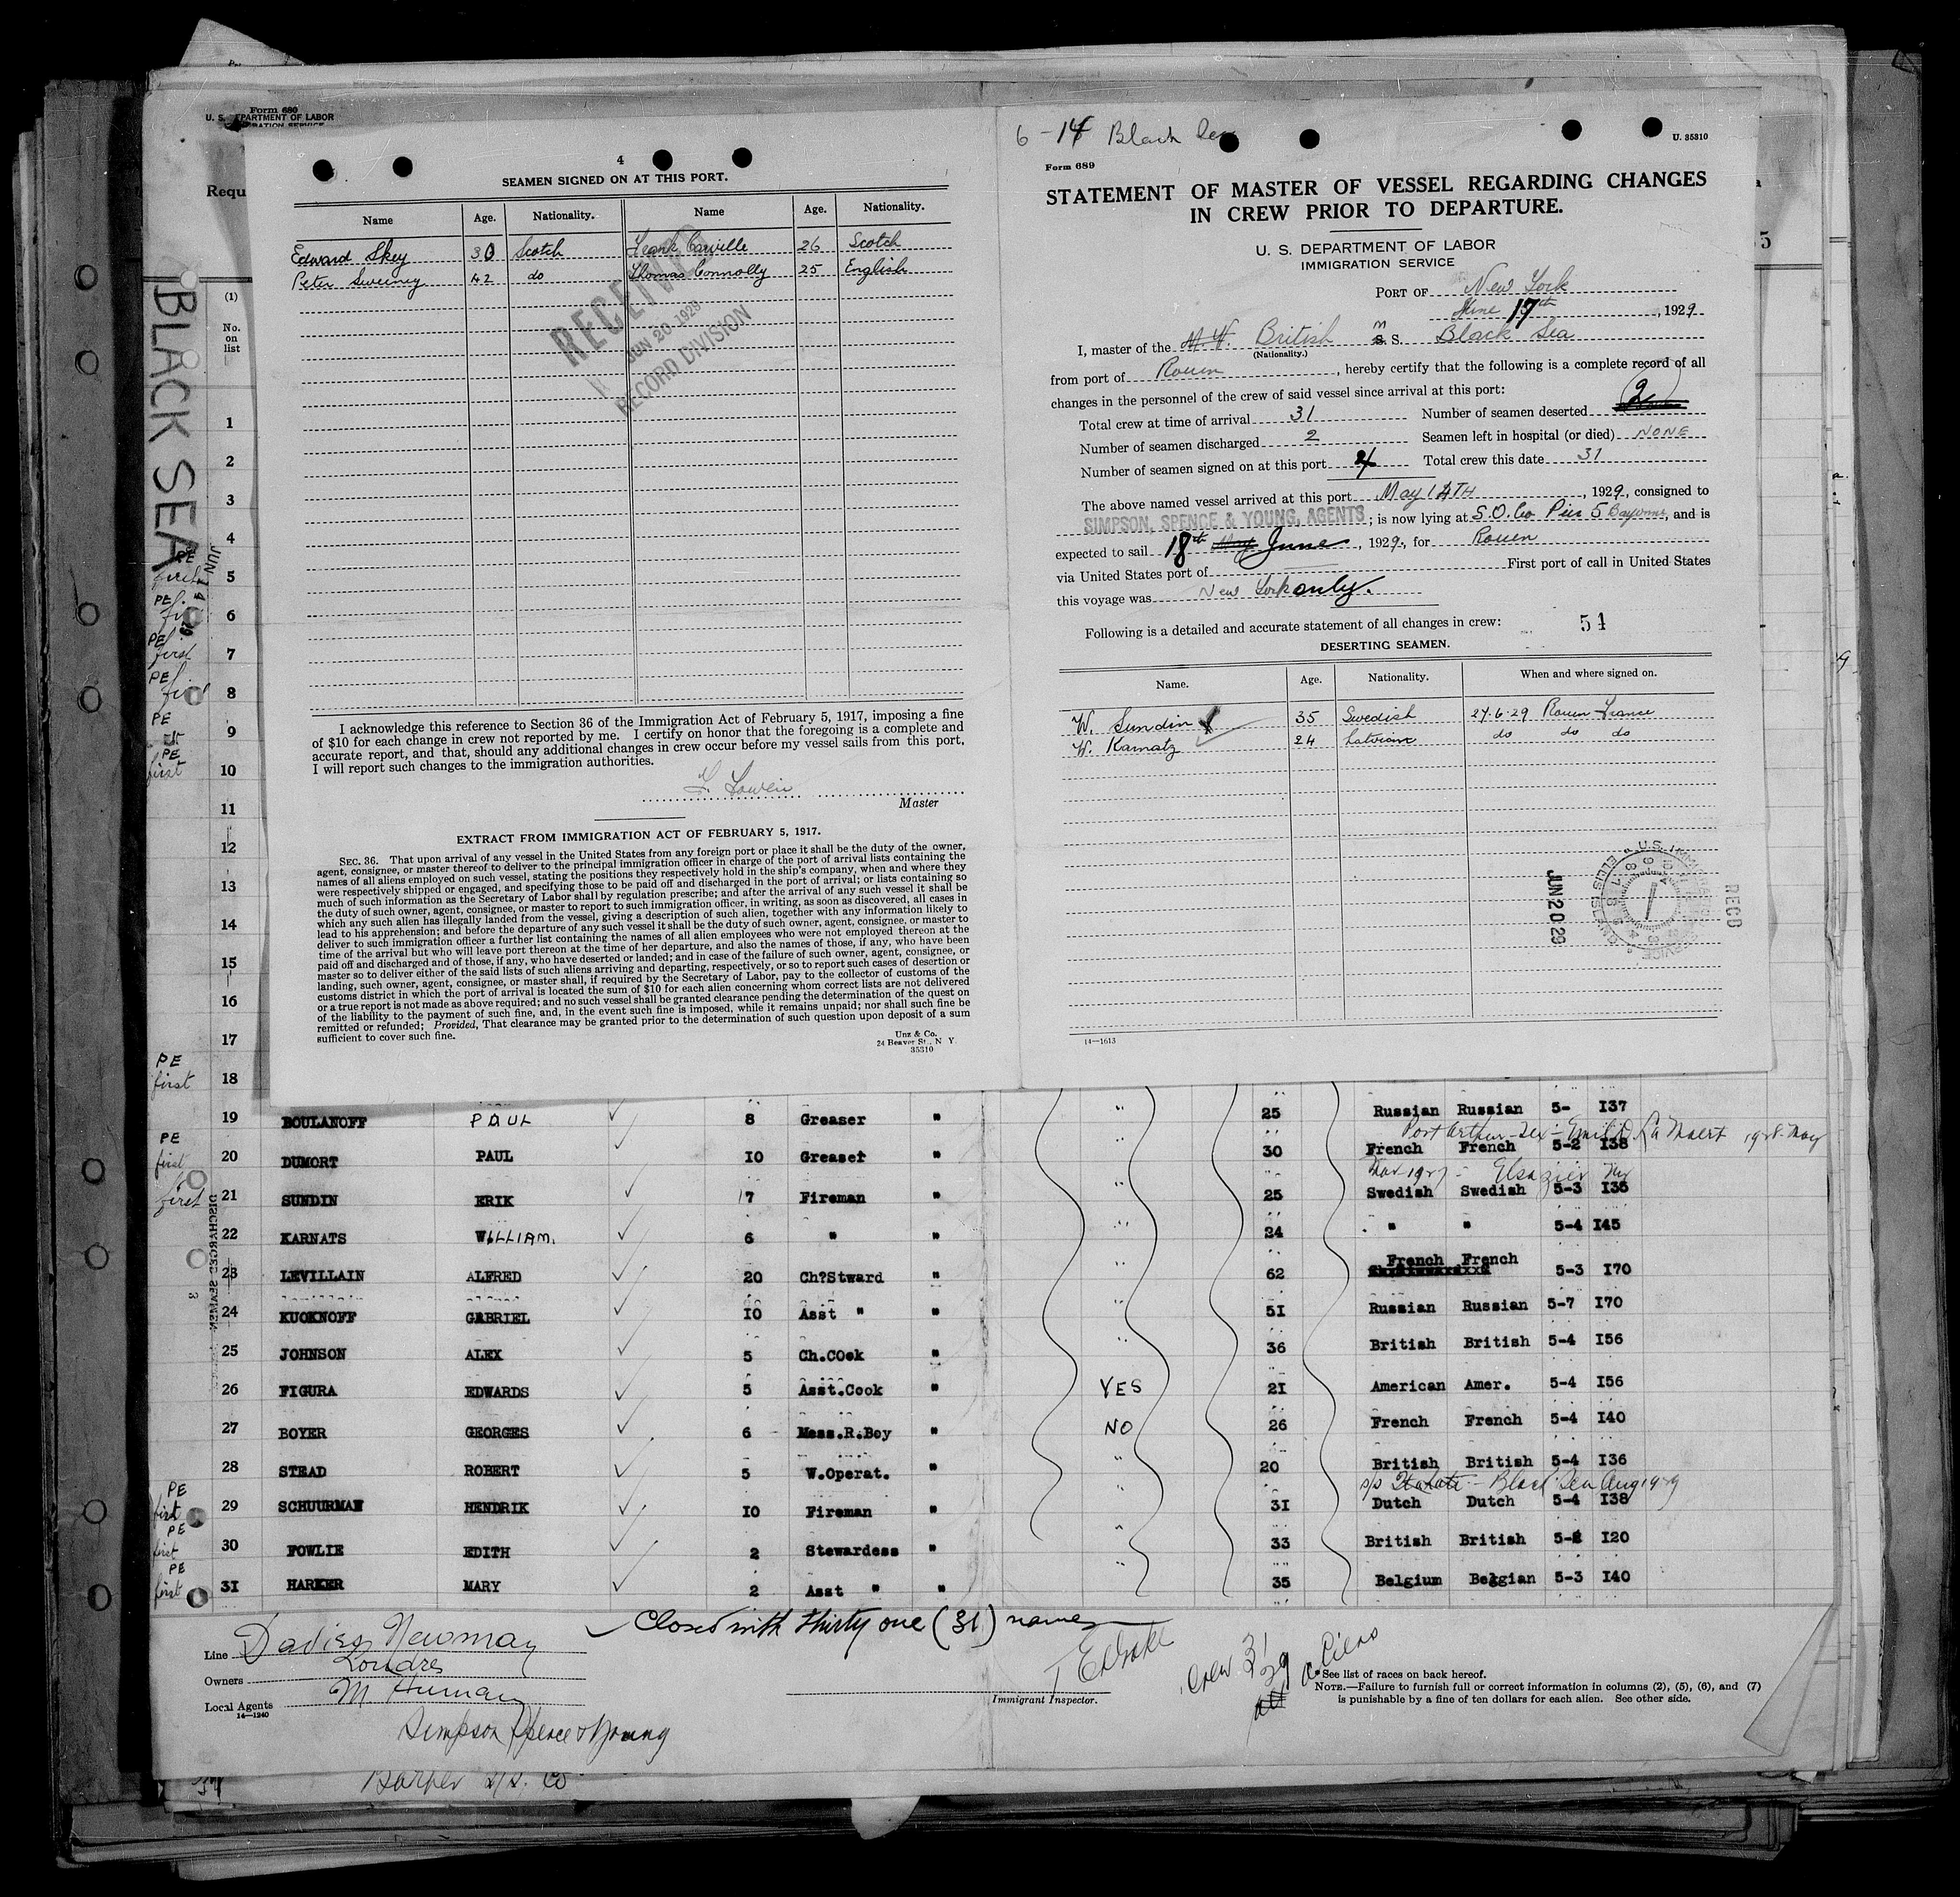 Form 680
U. S. DEPARTMENT OF LABOR
Requ
BLACK SEA
JUN 14 29
(1)
No.
on
list
4
SEAMEN SIGNED ON AT THIS PORT.
Name Age. Nationality. Name Age. Nationality.
Edward Skey 30 Scotch Frank Carville 26 Scotch
Peter Sweeney 42 do Thomas Connolly 25 English
RECEIVED
JUN 20 1929
RECORD DIVISION
I acknowledge this reference to Section 36 of the Immigration Act of February 5, 1917, imposing a fine
of $10 for each change in crew not reported by me. I certify on honor that the foregoing is a complete and
accurate report, and that, should any additional changes in crew occur before my vessel sails from this port,
I will report such changes to the immigration authorities.
Master
EXTRACT FROM IMMIGRATION ACT OF FEBRUARY 5, 1917.
SEC. 36. That upon arrival of any vessel in the United States from any foreign port or place it shall be the duty of the owner,
agent, consignee, or master thereof to deliver to the principal immigration officer in charge of the port of arrival lists containing the
names of all aliens employed on such vessel, stating the positions they respectively hold in the ship's company, when and where they
were respectively shipped or engaged, and specifying those to be paid off and discharged in the port of arrival; or lists containing so
much of such information as the Secretary of Labor shall by regulation prescribe; and after the arrival of any such vessel it shall be
the duty of such owner, agent, consignee, or master to report to such immigration officer, in writing, as soon as discovered, all cases in
which any such alien has illegally landed from the vessel, giving a description of such alien, together with any information likely to
lead to his apprehension; and before the departure of any such vessel it shall be the duty of such owner, agent, consignee, or master to
deliver to such immigration officer a further list containing the names of all alien employees who were not employed thereon at the
time of the arrival but who will leave port thereon at the time of her departure, and also the names of those, if any, who have been
paid off and discharged and of those, if any, who have deserted or landed; and in case of the failure of such owner, agent, consignee, or
master so to deliver either of the said lists of such aliens arriving and departing, respectively, or so to report such cases of desertion or
landing, such owner, agent, consignee, or master shall, if required by the Secretary of Labor, pay to the collector of customs of the
customs district in which the port of arrival is located the sum of $10 for each alien concerning whom correct lists are not delivered
or a true report is not made as above required; and no such vessel shall be granted clearance pending the determination of the quest on
of the liability to the payment of such fine, and, in the event such fine is imposed, while it remains unpaid; nor shall such fine be
remitted or refunded; Provided, That clearance may be granted prior to the determination of such question upon deposit of a sum
sufficient to cover such fine.
Unz & Co.
24 Beaver St., N Y.
35310
6-14 Black Sea
U. 35310
Form 689
STATEMENT OF MASTER OF VESSEL REGARDING CHANGES
IN CREW PRIOR TO DEPARTURE.
U. S. DEPARTMENT OF LABOR
IMMIGRATION SERVICE
PORT OF New York
June 17th, 1929.
I, master of the British M S. Black Sea
(Nationality.)
from port of Rouen, hereby certify that the following is a complete record of all
changes in the personnel of the crew of said vessel since arrival at this port:
Total crew at time of arrival 31 Number of seamen deserted 2
Number of seamen discharged 2 Seamen left in hospital (or died) NONE
Number of seamen signed on at this port 4 Total crew this date 31
The above named vessel arrived at this port May 14TH, 1929, consigned to
SIMPSON, SPENCE & YOUNG, AGENTS; is now lying at S.O. Co Pier 5 Bayonne, and is
expected to sail 18th June, 1929, for Rouen
via United States port of First port of call in United States
this voyage was New York only.
Following is a detailed and accurate statement of all changes in crew: 54
DESERTING SEAMEN.
Name. Age. Nationality. When and where signed on.
W. Sundin 35 Swedish 27.6.29 Rouen France
W. Karnatz 24 Latvian do do do
JUN 20 29
RECD
14—1613
1
2
3
4
5
6
7
8
9
10
11
12
13
14
15
16
17
PE first 18
19 BOULANOFF PAUL 8 Greaser " " 25 Russian Russian 5- I37
PE first 20 DUMORT PAUL 10 Greaser " " 30 French French 5-2 I38
first 21 SUNDIN ERIK 7 Fireman " " 25 Swedish Swedish 5-3 I35
22 KARNATS WILLIAM. 6 " " " 24 " " 5-4 I45
23 LEVILLAIN ALFRED 20 Ch?Stward " " 62 French French 5-3 I70
24 KUOKNOFF GABRIEL 10 Asst " " 51 Russian Russian 5-7 I70
25 JOHNSON ALEX 5 Ch.COok " " 36 British British 5-4 I56
26 FIGURA EDWARDS 5 Asst.Cook " YES 21 American Amer. 5-4 I56
27 BOYER GEORGES 6 Mess.R.Boy " NO 26 French French 5-4 I40
28 STEAD ROBERT 5 W.Operat. " " 20 British British 5-4 I36
PE first 29 SCHUURMAN HENDRIK 10 Fireman " " 31 Dutch Dutch 5-4 I38
PE first 30 FOWLIE EDITH 2 Stewardess " " 33 British British 5-2 I20
PE first 31 HARKER MARY 2 Asst " " " 35 Belgium Belgian 5-3 I40
DISCHARGED SEAMEN
Closed with thirty one (31) names
Line Davies Newman
Londres
Owners
Local Agents
14—1240
Simpson Spence & Young
Immigrant Inspector.
Crew 31
29 aliens
* See list of races on back hereof.
NOTE.—Failure to furnish full or correct information in columns (2), (5), (6), and (7)
is punishable by a fine of ten dollars for each alien. See other side.